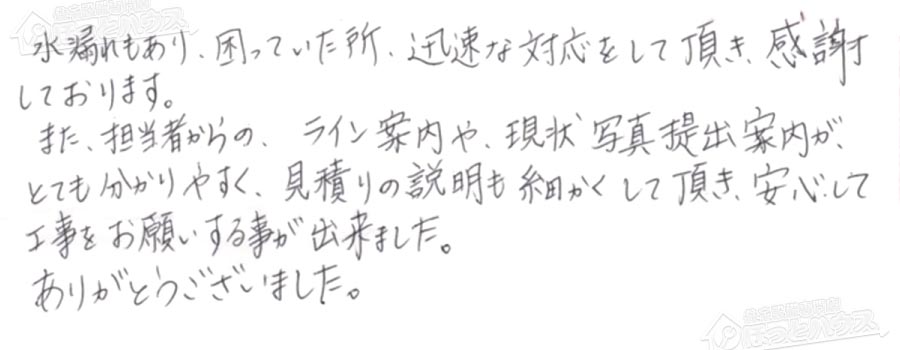 水漏れもあり、困っていた所、迅速な対応をして頂き、感謝
しております。
また、担当者からの、ライン案内や、現状写真提出案内が、
とても分かりやすく、見積りの説明も細かくして頂き、安心して
工事をお願いする事が出来ました。
ありがとうございました。
ほっとハウス